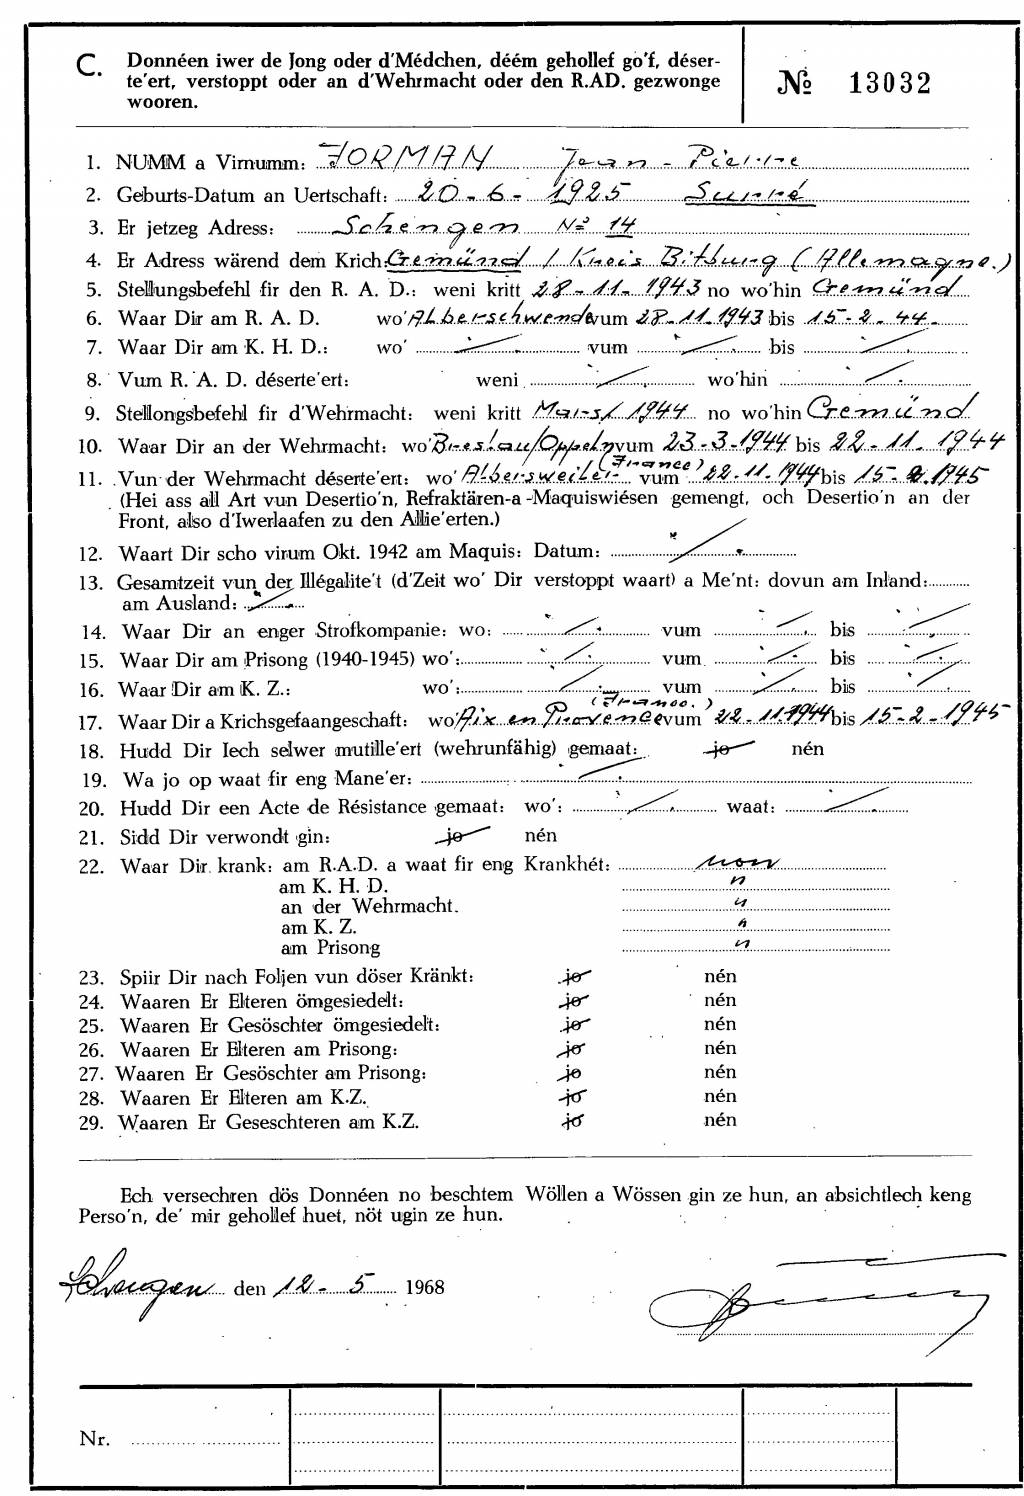 C. Donnéen iwer de Jong oder d'Médchen, déém gehollef go'f, déser-
te'ert, verstoppt oder an d'Wehrmacht oder den R.AD. gezwonge
wooren.
№ 13032
1. NUMM a Virnumm: JORMAN Jean-Pierre
2. Geburts-Datum an Uertschaft: 20-6-1925 Surré
3. Er jetzeg Adress: Schengen № 14
4. Er Adress wärend dem Krich: Gemünd / Kreis Bitburg (Allemagne.)
5. Stellungsbefehl fir den R. A. D.: weni kritt 28-11-1943 no wo'hin Gemünd
6. Waar Dir am R. A. D. wo' Alberschwende vum 28-11-1943 bis 15-2-44-
7. Waar Dir am K. H. D.: wo' ./. vum ./. bis ./.
8. Vum R. A. D. déserte'ert: weni ./. wo'hin ./.
9. Stellongsbefehl fir d'Wehrmacht: weni kritt Mars/1944 no wo'hin Gemünd
10. Waar Dir an der Wehrmacht: wo' Breslau/Oppeln vum 23-3-1944 bis 22-11-1944
11. Vun der Wehrmacht déserte'ert: wo' Albersweiler (France) vum 22-11-1944 bis 15-2-1945
(Hei ass all Art vun Desertio'n, Refraktären-a-Maquiswiésen gemengt, och Desertio'n an der
Front, also d'Iwerlaafen zu den Allie'erten.)
12. Waart Dir scho virum Okt. 1942 am Maquis: Datum: ./.
13. Gesamtzeit vun der Illégalite't (d'Zeit wo' Dir verstoppt waart) a Me'nt: dovun am Inland:
am Ausland: ./.
14. Waar Dir an enger Strofkompanie: wo: ./. vum ./. bis ./.
15. Waar Dir am Prisong (1940-1945) wo': ./. vum ./. bis ./.
16. Waar Dir am K. Z.: wo': ./. vum ./. bis ./.
17. Waar Dir a Krichsgefaangeschaft: wo' Aix en Provence (France.) vum 22-11-1944 bis 15-2-1945
18. Hudd Dir Iech selwer mutille'ert (wehrunfähig) gemaat: jo nén
19. Wa jo op waat fir eng Mane'er: ./.
20. Hudd Dir een Acte de Résistance gemaat: wo': ./. waat: ./.
21. Sidd Dir verwondt gin: jo nén
22. Waar Dir krank: am R.A.D. a waat fir eng Krankhét: non
am K. H. D. "
an der Wehrmacht. "
am K. Z. "
am Prisong "
23. Spiir Dir nach Foljen vun döser Kränkt: jo nén
24. Waaren Er Elteren ömgesiedelt: jo nén
25. Waaren Er Gesöschter ömgesiedelt: jo nén
26. Waaren Er Elteren am Prisong: jo nén
27. Waaren Er Gesöschter am Prisong: jo nén
28. Waaren Er Elteren am K.Z. jo nén
29. Waaren Er Geseschteren am K.Z. jo nén
Ech versechren dös Donnéen no beschtem Wöllen a Wössen gin ze hun, an absichtlech keng
Perso'n, de' mir gehollef huet, nöt ugin ze hun.
Schengen den 12-5 1968
Nr.